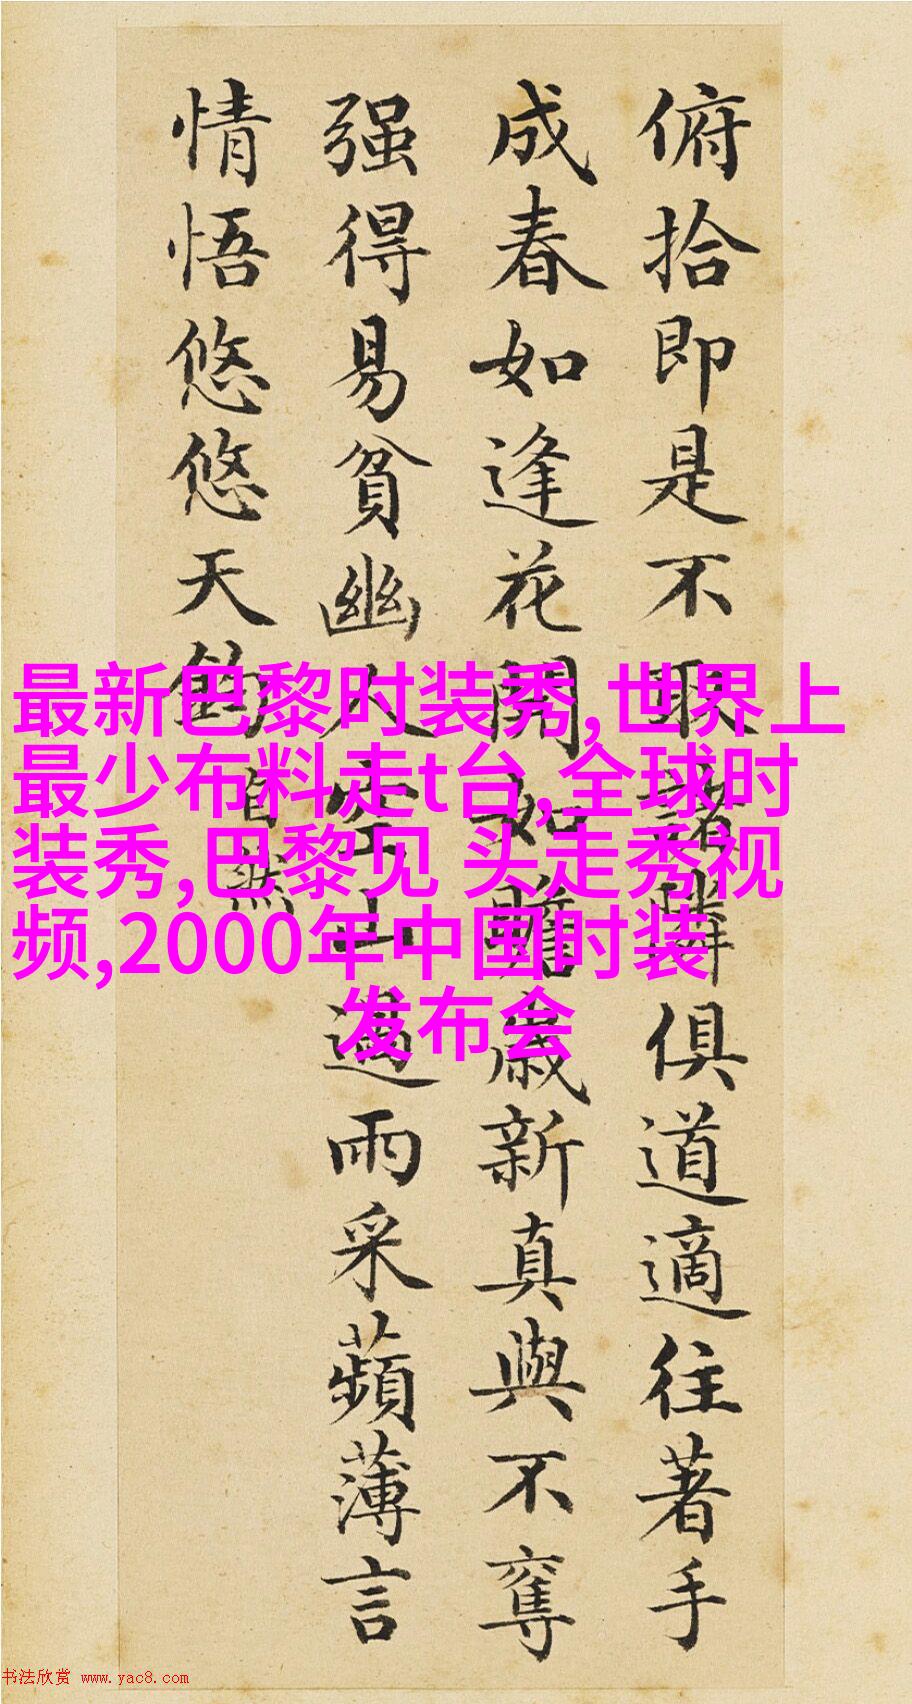 俯拾即是不取諸隣俱道適往著手
成春如逢花開如瞻歲新真與不奪
强得易貧幽人空山過雨采蘋薄言
情悟悠悠天鈞自然
最新巴黎时装秀,世界上
最少布料走t台,全球时
装秀,巴黎见 头走秀视
频,2000年中国时装
发布会
书法欣赏 www.yac8.com